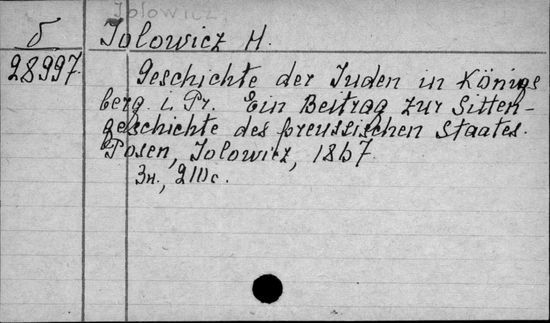 Jolowicz
δ
Jolowicz H.
28997.
Geschichte der Juden in Königs
berg i. Pr. Ein Beitrag zur Sitten-
geschichte des preussischen Staates.
Posen, Jolowicz, 1867.
3н., 210 c.